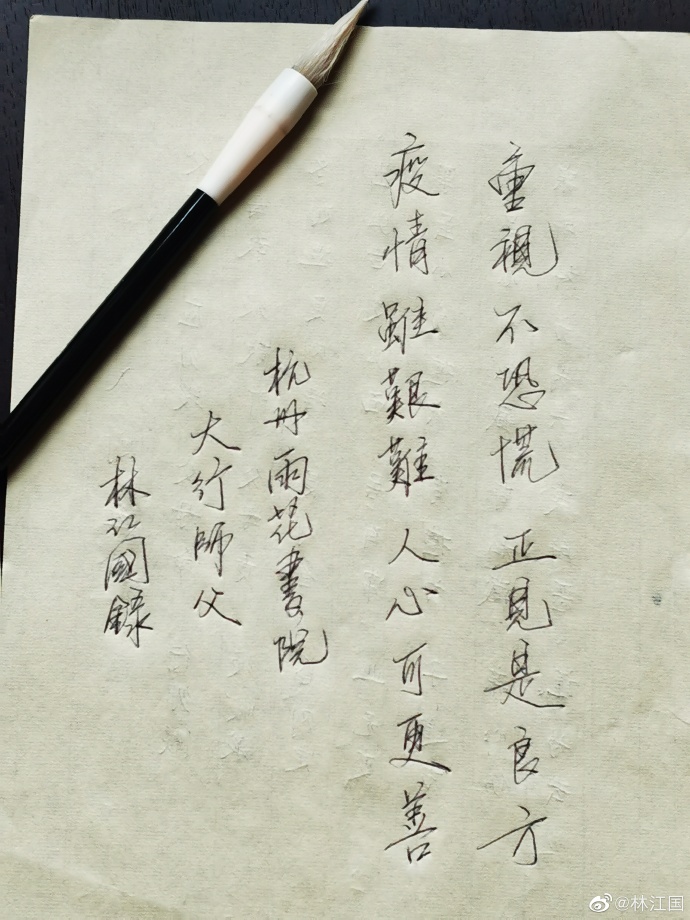 重視不恐慌正見是良方
疫情雖艱難人心可更善
杭州雨花書院
大行師父
林江國錄
@林江国